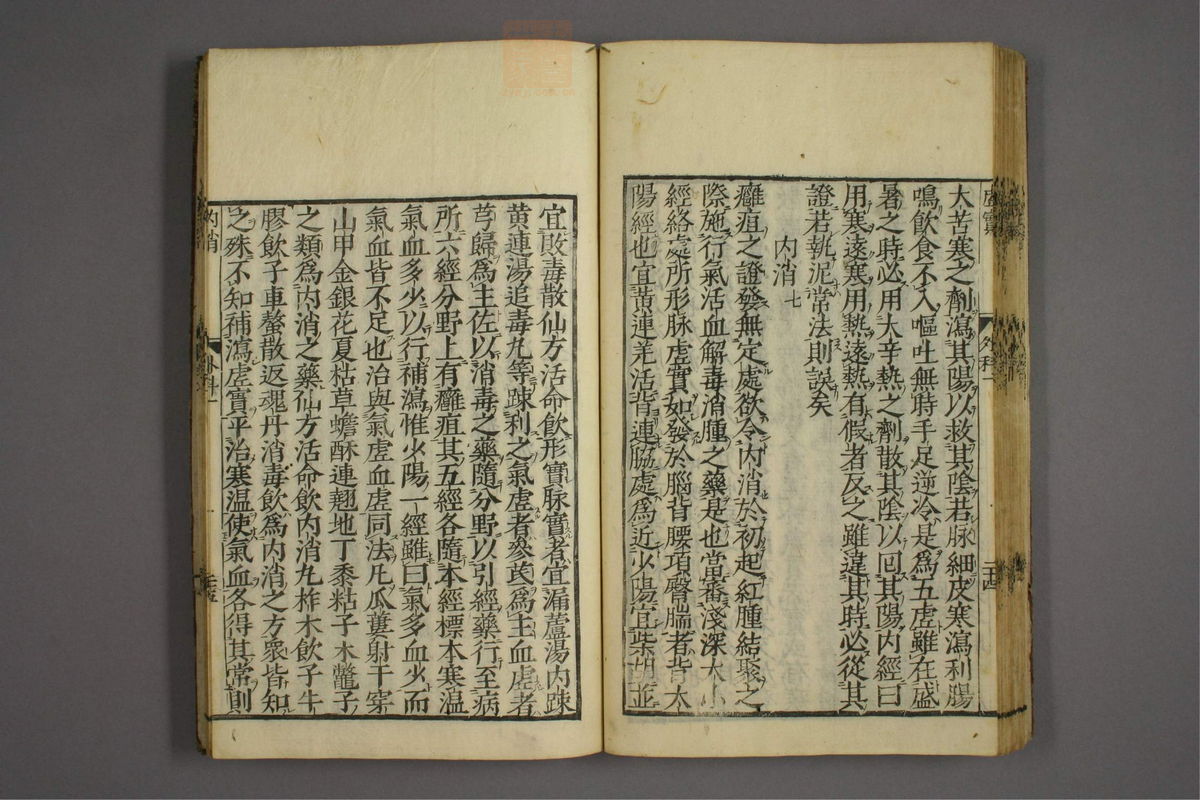 大苦寒之劑瀉其陽以救其陰若脉細皮寒瀉利腸
鳴飲食不入嘔吐無時手足逆冷是為五虛雖在盛
暑之時必用大辛熱之劑散其陰以回其陽内經曰
用寒逺寒用熱逺熱有假者反之雖違其時必從其
證若執泥常法則誤矣
内消 七
癰疽之證發無定處欲令内消於初起紅腫結聚之
際施行氣活血解毒消腫之藥是也當審淺深大小
經絡處所形脉虛實如發於腦背腰項臀腨者皆太
陽經也宜黄連羌活背連脇處為近少陽宜柴胡並
宜敗毒散仙方活命飲形實脉實者宜漏蘆湯内踈
黄連湯追毒丸等踈利之氣虛者參芪為主血虛者
芎歸為主佐以消毒之藥隨分野以引經藥行至病
所六經分野上有癰疽其五經各隨本經標本寒温
氣血多少以行補瀉惟少陽一經雖曰氣多血少而
氣血皆不足也治與氣虛血虛同法凡瓜蔞射干穿
山甲金銀花夏枯草蟾酥連翹地丁黍粘子木鼈子
之類為内消之藥仙方活命飲内消丸柞木飲子牛
膠飲子車螯散返魂丹消毒飲為内消之方衆皆知
之殊不知補瀉虛實平治寒温使氣血各得其常則
内消
外科一